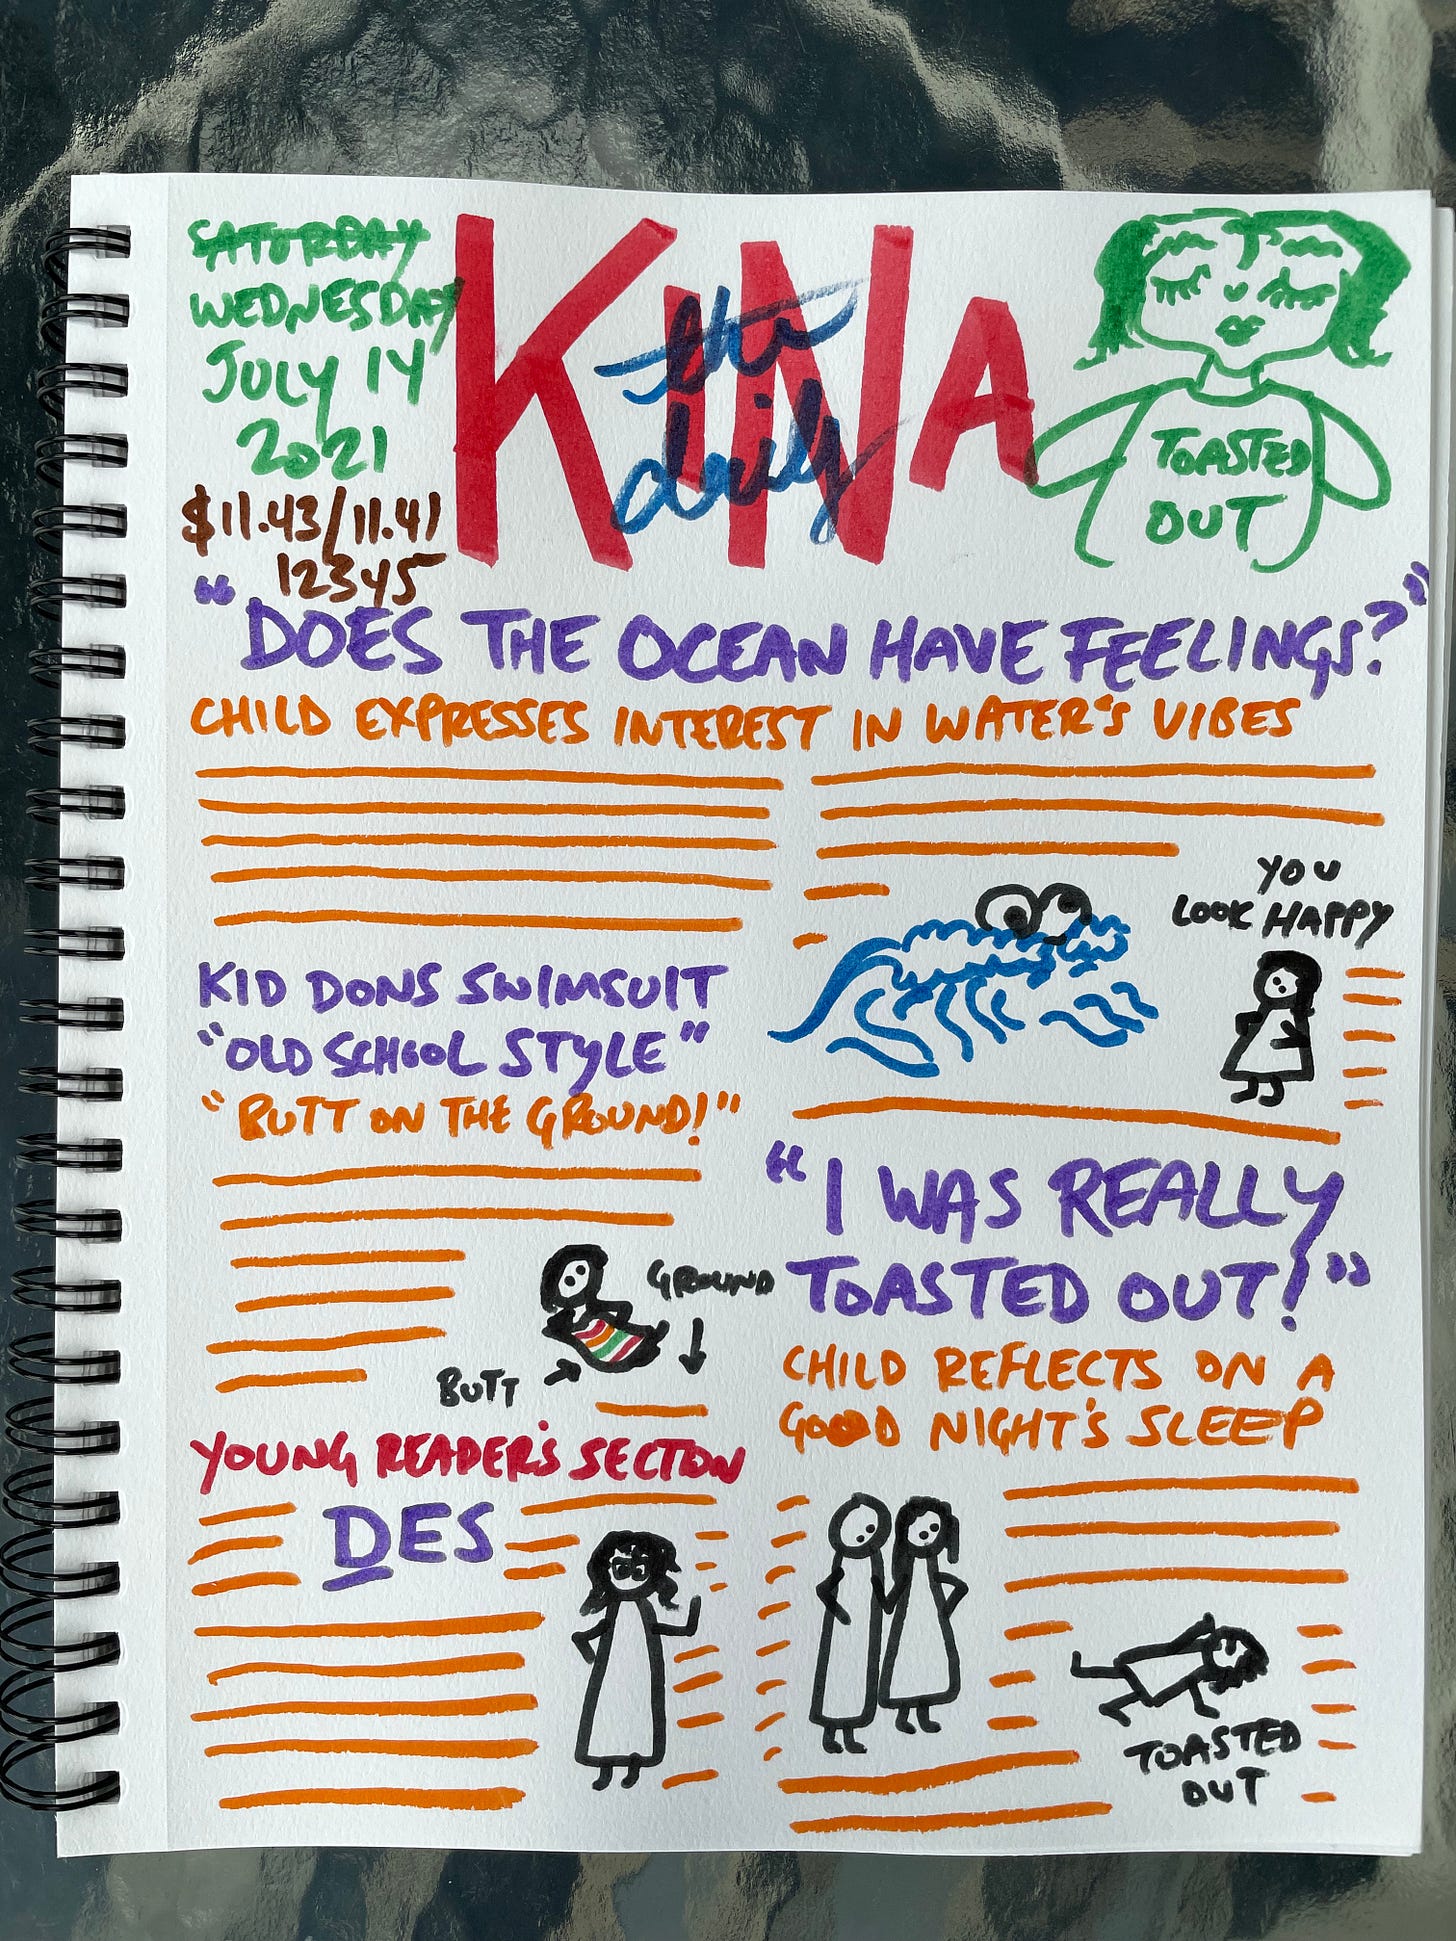 SATURDAY
WEDNESDAY
JULY 14
2021
$11.43/11.41
12345
KINA
the
daily
TOASTED
OUT
"DOES THE OCEAN HAVE FEELINGS?"
CHILD EXPRESSES INTEREST IN WATER'S VIBES
YOU
LOOK HAPPY
KID DONS SWIMSUIT
"OLD SCHOOL STYLE"
"BUTT ON THE GROUND!"
GROUND
BUTT
"I WAS REALLY
TOASTED OUT!"
CHILD REFLECTS ON A
GOOD NIGHT'S SLEEP
TOASTED
OUT
YOUNG READER'S SECTION
DES